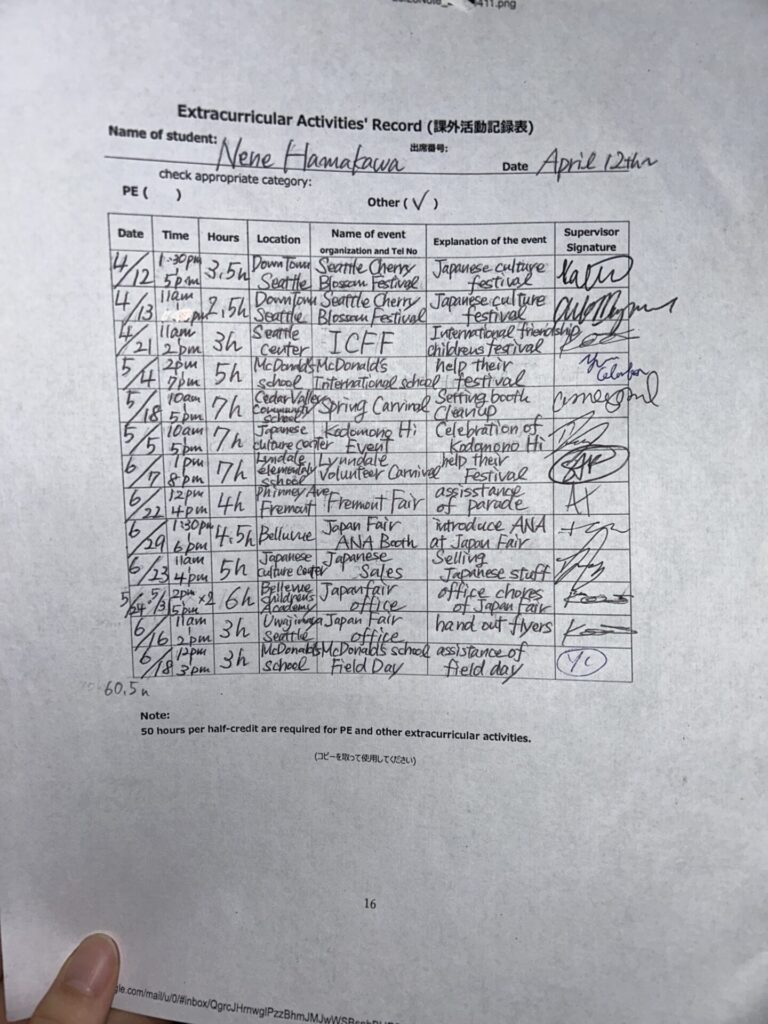 411.png
Extracurricular Activities' Record (課外活動記録表)
Name of student: Nene Hamakawa
出席番号:
Date April 12th
check appropriate category:
PE ( )
Other (✓)
Date Time Hours Location Name of event organization and Tel No Explanation of the event Supervisor Signature
4/12 1:30pm 5pm 3.5h DownTown Seattle Seattle Cherry Blossom Festival Japanese culture festival
4/13 11am 2.5h DownTown Seattle Seattle Cherry Blossom Festival Japanese culture festival
4/21 11am 2pm 3h Seattle center ICFF International friendship childrens festival
5/4 2pm 7pm 5h McDonald's school McDonald's International school help their festival
5/18 10am 5pm 7h Cedar Valley community school Spring Carvinal Setting booth cleanup
5/5 10am 5pm 7h Japanese culture center Kodomono Hi Event Celebration of Kodomono Hi
6/7 1pm 8pm 7h Lyndale elementary school Lynndale Volunteer Carnival help their Festival
6/22 12pm 4pm 4h Phinney Ave Fremont Fremont Fair assisstance of parade
6/29 1:30pm 6pm 4.5h Belluvue Japan Fair ANA Booth introduce ANA at Japan Fair
6/23 11am 4pm 5h Japanese culture center Japanese Sales Selling Japanese stuff
5/24 5/31 2pm 5pm ×2 6h Bellevue childrens Academy Japanfair office office chokes of Japan Fair
6/16 11am 2pm 3h Uwajimaya Seattle Japan Fair office hand out flyers
6/18 12pm 3pm 3h McDonald's school McDonald's school Field Day assistance of field day YC
60.5h
Note:
50 hours per half-credit are required for PE and other extracurricular activities.
(コピーを取って使用してください)
16
gle.com/mail/u/0/#inbox/QgrcJHrnwglPzzBhmJMJwWSB